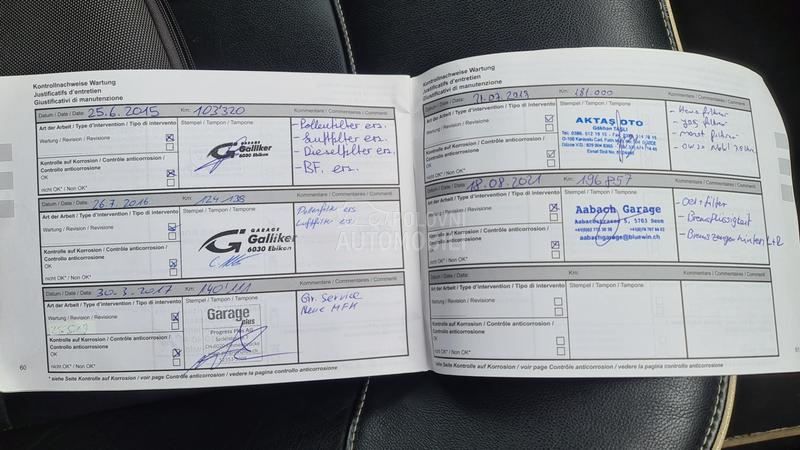 Kontrollnachweise Wartung
Justificatifs d'entretien
Giustificativi di manutenzione
Datum / Date / Data: 25.6.2015 Km: 103'320
Art der Arbeit / Type d'intervention / Tipo di intervento
Wartung / Revision / Revisione
Kontrolle auf Korrosion / Contrôle anticorrosion /
Controllo anticorrosione
OK
nicht OK* / Non OK*
Stempel / Tampon / Tampone
GARAGE
Galliker
6030 Ebikon
Kommentare / Commentaires / Commenti
- Pollenfilter ers.
- Luftfilter ers.
- Dieselfilter ers.
- BF. ers.
Datum / Date / Data: 26.7.2016 Km: 124'138
Art der Arbeit / Type d'intervention / Tipo di intervento
Wartung / Revision / Revisione
Kontrolle auf Korrosion / Contrôle anticorrosion /
Controllo anticorrosione
OK
nicht OK* / Non OK*
Stempel / Tampon / Tampone
GARAGE
Galliker
6030 Ebikon
Kommentare / Commentaires / Commenti
Pollenfilter ers
Luftfilter ers.
Datum / Date / Data: 30.3.2017 Km: 140'111
Art der Arbeit / Type d'intervention / Tipo di intervento
Wartung / Revision / Revisione
Kontrolle auf Korrosion / Contrôle anticorrosion /
Controllo anticorrosione
OK
nicht OK* / Non OK*
Stempel / Tampon / Tampone
Garage
plus
Progress Plus AG
Kommentare / Commentaires / Commenti
Gr. Service
Neue MFK
60
* siehe Seite Kontrolle auf Korrosion / voir page Contrôle anticorrosion / vedere la pagina controllo anticorrosione
Kontrollnachweise Wartung
Justificatifs d'entretien
Giustificativi di manutenzione
Datum / Date / Data: 21.07.2019 Km: 181.000
Art der Arbeit / Type d'intervention / Tipo di intervento
Wartung / Revision / Revisione
Kontrolle auf Korrosion / Contrôle anticorrosion /
Controllo anticorrosione
OK
nicht OK* / Non OK*
Stempel / Tampon / Tampone
AKTAŞ OTO
Gökhan TAŞLI
Kommentare / Commentaires / Commenti
Datum / Date / Data: 18.08.2021 Km: 196.857
Art der Arbeit / Type d'intervention / Tipo di intervento
Wartung / Revision / Revisione
Kontrolle auf Korrosion / Contrôle anticorrosion /
Controllo anticorrosione
OK
nicht OK* / Non OK*
Stempel / Tampon / Tampone
Aabach Garage
5703 Seon
aabachgarage@bluewin.ch
Kommentare / Commentaires / Commenti
- Oel + filter
- Bremsflüssigkeit
- Bremszangen hinten L+R
Datum / Date / Data: Km:
Art der Arbeit / Type d'intervention / Tipo di intervento
Wartung / Revision / Revisione
Kontrolle auf Korrosion / Contrôle anticorrosion /
Controllo anticorrosione
OK
nicht OK* / Non OK*
Stempel / Tampon / Tampone
Kommentare / Commentaires / Commenti
* siehe Seite Kontrolle auf Korrosion / voir page Contrôle anticorrosion / vedere la pagina controllo anticorrosione
POLOVNI
AUTOMOBILI